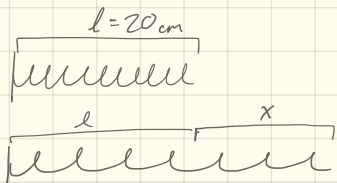 l = 20 cm
l x